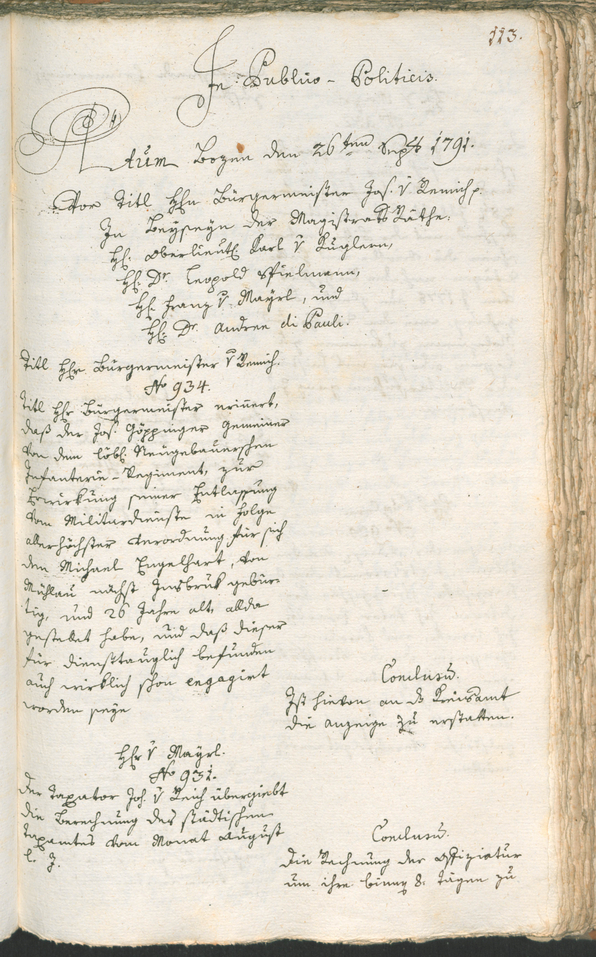 113.
In Publico-Politicis.
Actum Bozen den 26ten Septb 1791.
Vor Titl Hhn Bürgermeister Jos. v Remich p.
In Beyseyn der Magistrats Räthe:
Hh. Oberlieut. Karl v Kuglern,
Hh. Dr. Leopold Spielmann,
Hh. Franz v. Mayrl, und
Hh. Dr. Andree di Pauli.
Titl Hhr Bürgermeister v Remich.
No 934.
Titl Hhr Bürgermeister erinert,
daß der Jos. Göppinger Gemeiner
von dem löbl. Neugebauerschen
Infanterie-Regiment, zur
Erwirkung seiner Entlassung
vom Militardienste in Folge
allerhöchster Verordnung für sich
den Michael Engelhart, von
Mühlau nächst Insbruk gebür-
tig, und 26 Jahre alt, allda
gestellet habe, und daß dieser
für diensttauglich befunden
auch wirklich schon engagirt
worden seye
Conclusu.
Ist hievon an ds Kreisamt
die Anzeige zu erstatten.
Hhr v Mayrl.
No 931.
Der Taxator Joh. v Reich übergiebt
die Berechnung des städtischen
Taxamtes vom Monat August
l. J.
Conclusu.
Die Rechnung der Offiziatur
um ihre binen 8. Tägen zu